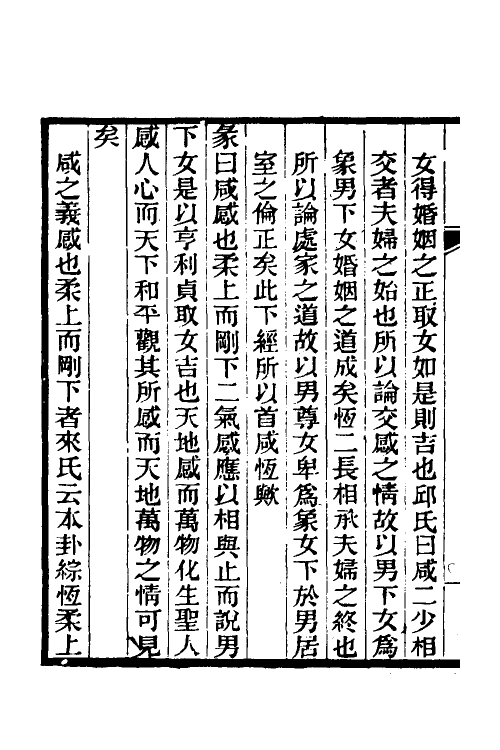 女得婚姻之正取女如是則吉也邱氏曰咸二少相
交者夫婦之始也所以論交感之情故以男下女爲
象男下女婚姻之道成矣恆二長相承夫婦之終也
所以論處家之道故以男尊女卑爲象女下於男居
室之倫正矣此下經所以首咸恆歟
彖曰咸感也柔上而剛下二氣感應以相與止而說男
下女是以亨利貞取女吉也天地感而萬物化生聖人
感人心而天下和平觀其所感而天地萬物之情可見
矣
咸之義感也柔上而剛下者來氏云本卦綜恆柔上